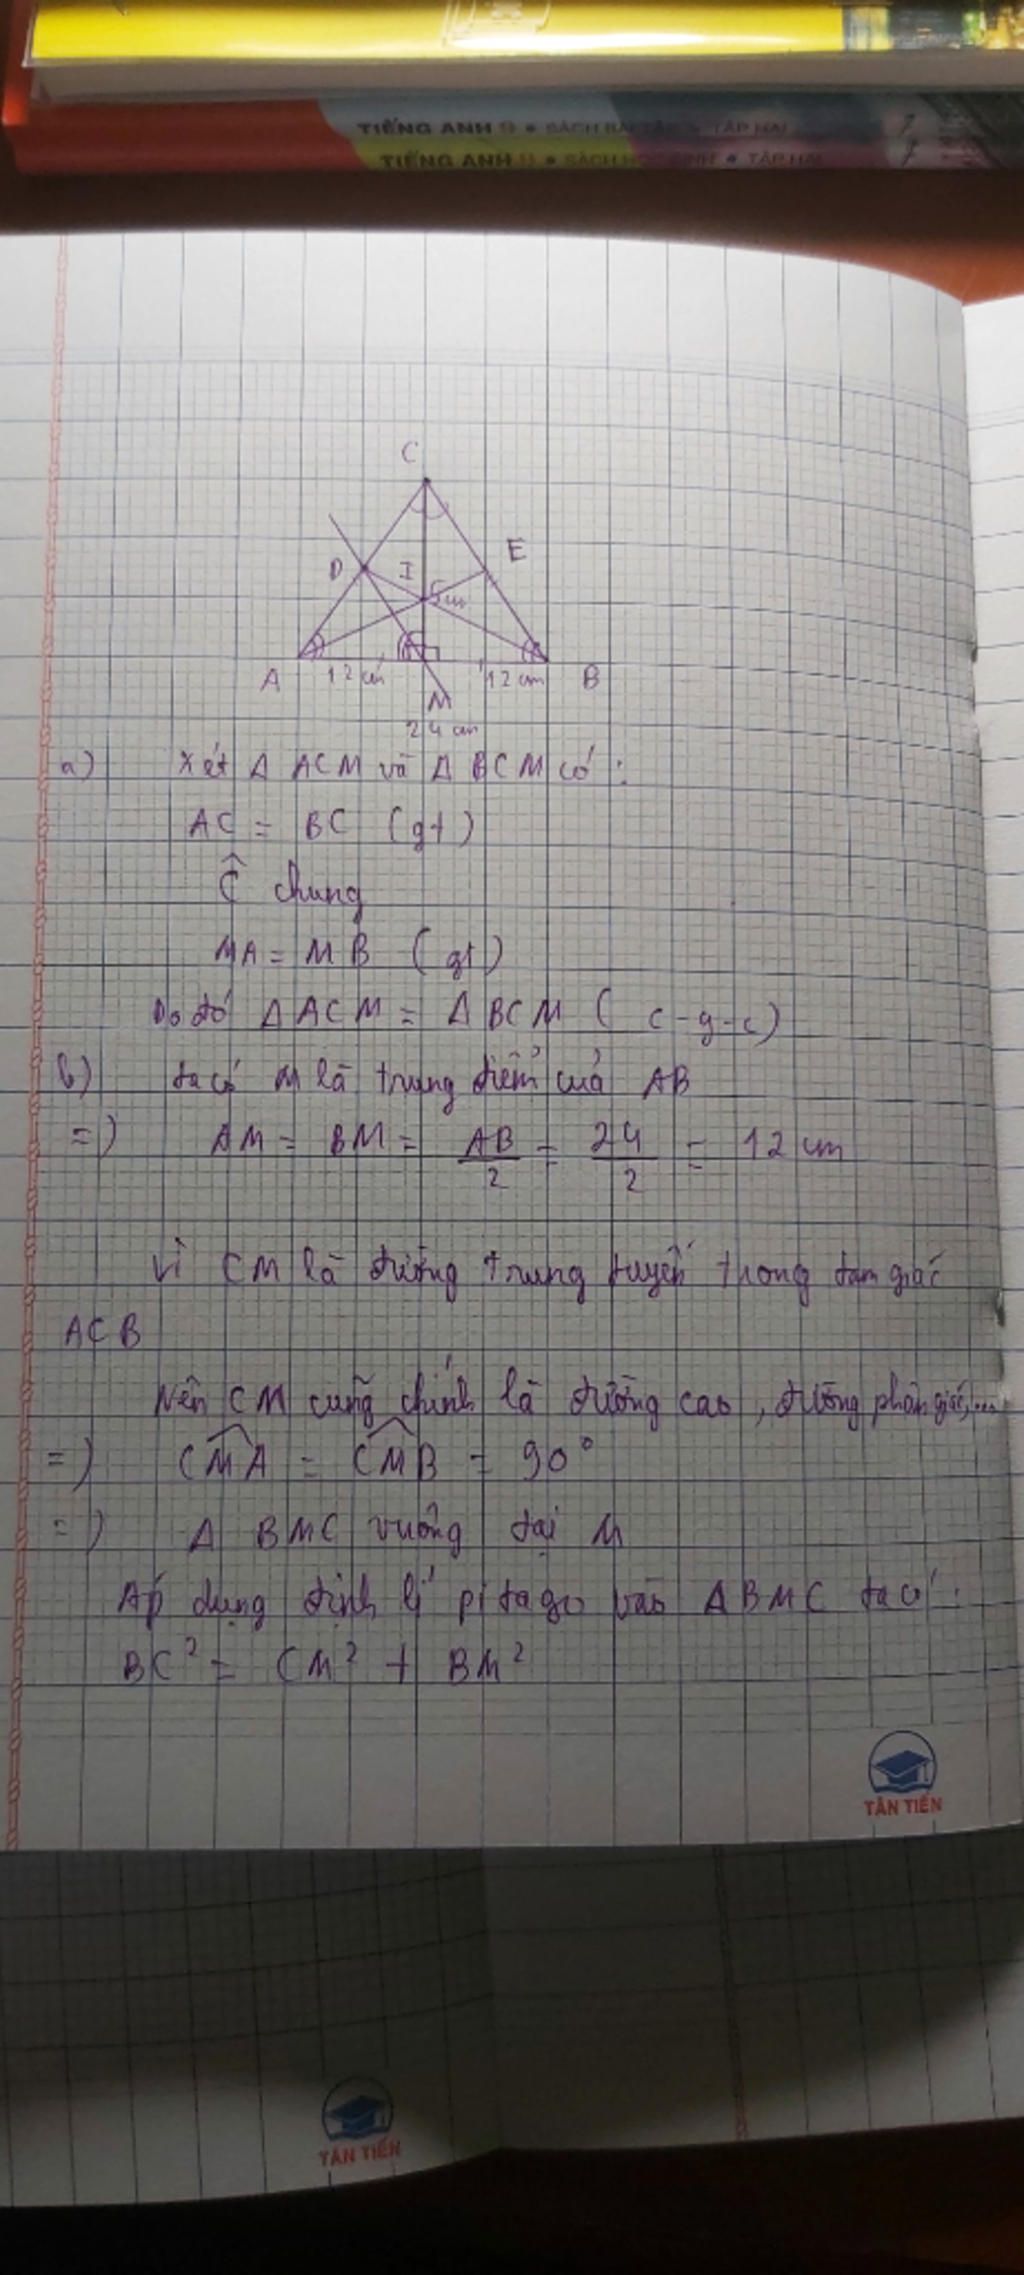 TIẾNG ANH 9 • SÁCH BÀI TẬP • TẬP HAI
TIẾNG ANH • SÁCH HỌC SINH • TẬP HAI
C
D I E
5cm
A 12 cm 12 cm B
M
24 cm
a) Xét Δ ACM và Δ BCM có :
AC = BC (gt)
Ĉ chung
MA = MB (gt)
Do đó Δ ACM = Δ BCM ( c-g-c)
b) ta có M là trung điểm của AB
=) AM = BM = AB/2 = 24/2 = 12 cm
Vì CM là đường trung tuyến trong tam giác
ACB
Nên CM cũng chính là đường cao, đường phân giác,...
=) CMA = CMB = 90°
=) Δ BMC vuông tại M
Áp dụng định lí pitago vào Δ BMC ta có :
BC² = CM² + BM²
TÂN TIẾN
TÂN TIẾN